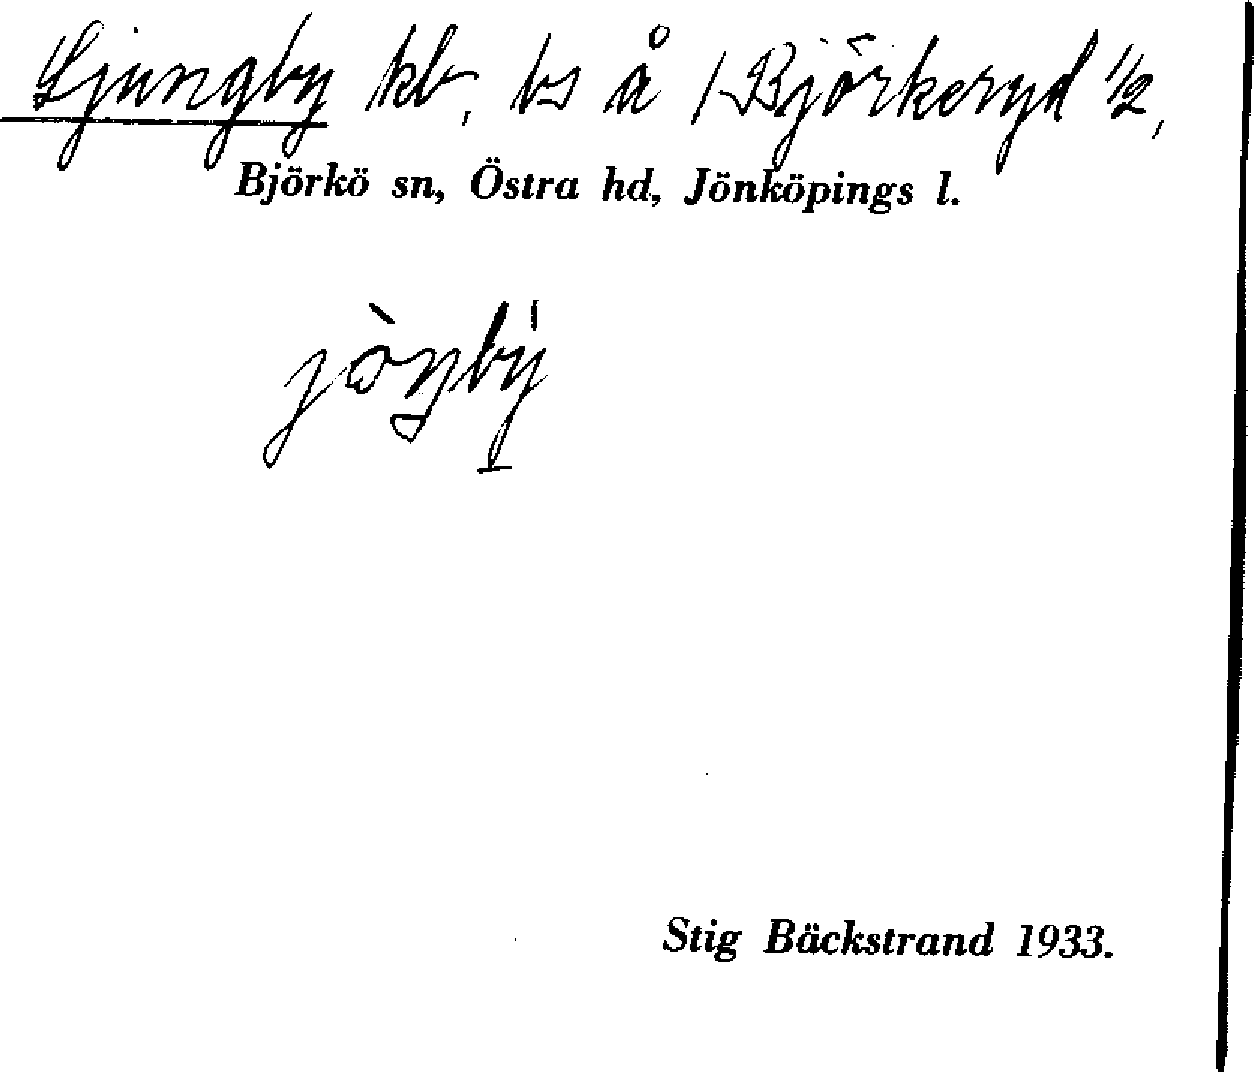 Ljungby kb, bs å /Björkeryd ½,
Björkö sn, Östra hd, Jönköpings l.
Stig Bäckstrand 1933.